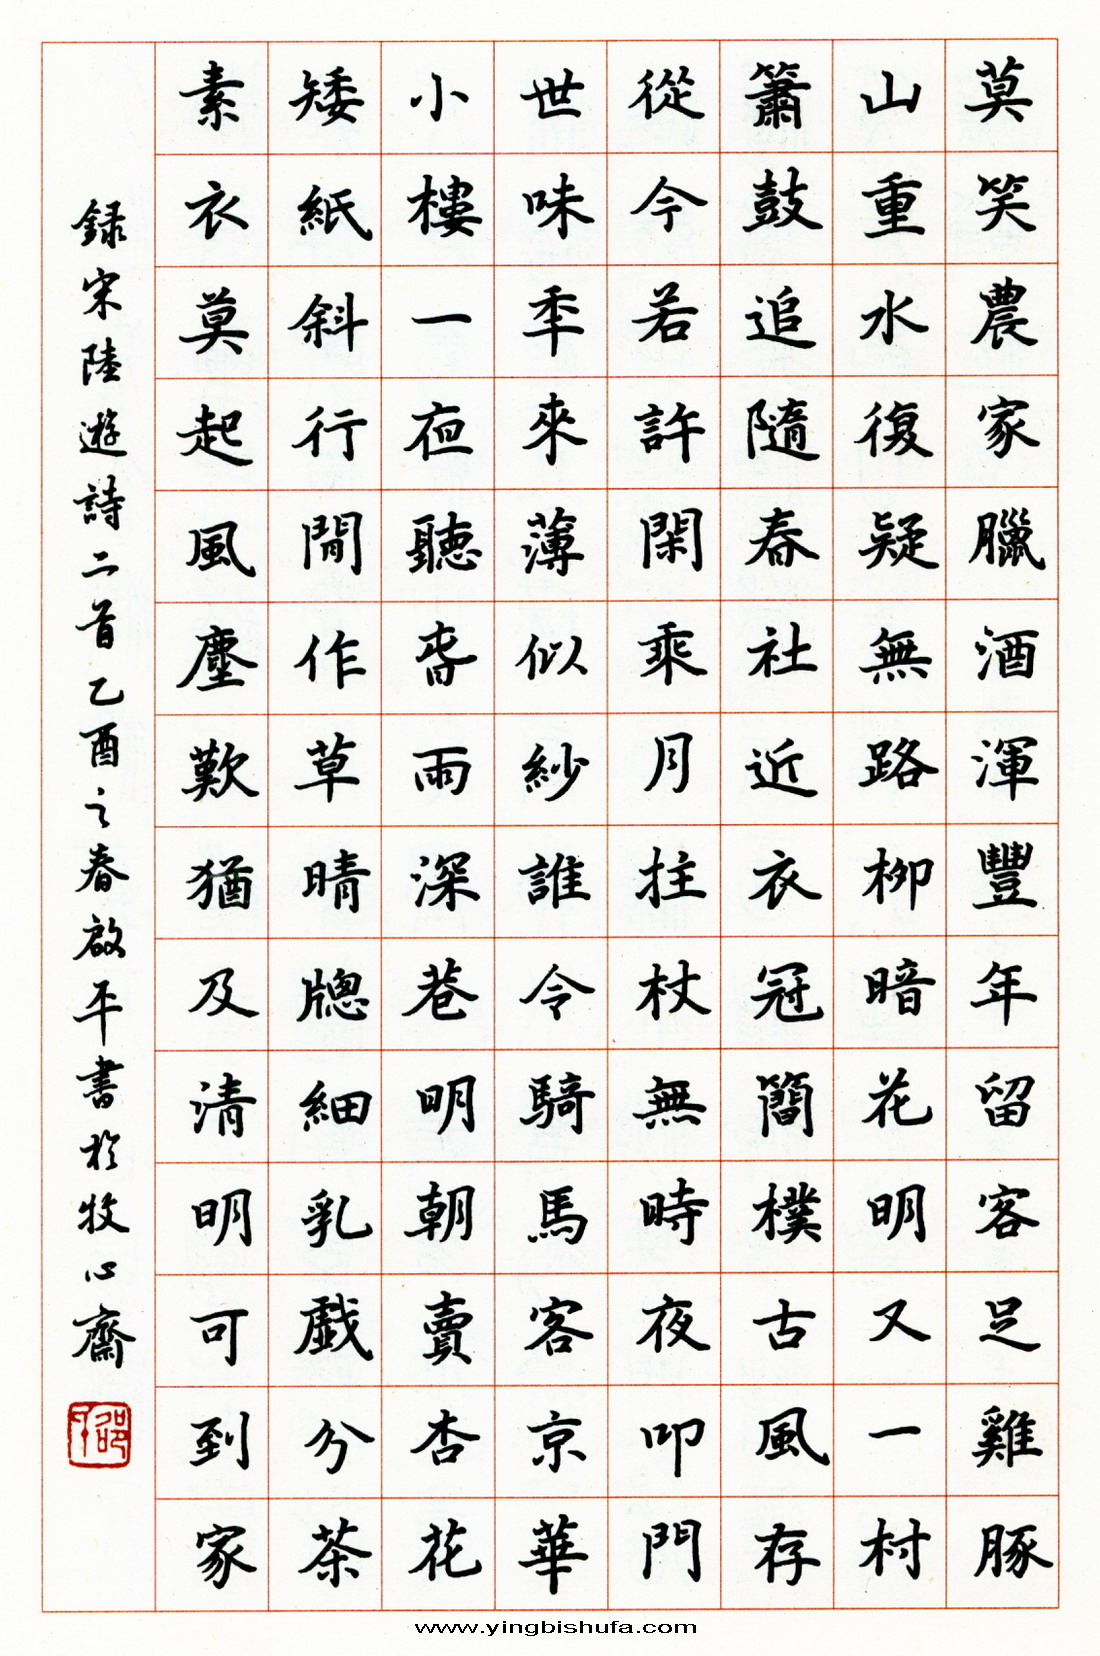 莫笑農家臘酒渾豐年留客足雞豚
山重水復疑無路柳暗花明又一村
簫鼓追隨春社近衣冠簡樸古風存
從今若許閑乘月拄杖無時夜叩門
世味秊來薄似紗誰令騎馬客京華
小樓一夜聽春雨深巷明朝賣杏花
矮紙斜行閒作草晴牕細乳戲分茶
素衣莫起風塵歎猶及清明可到家
録宋陸遊詩二首乙酉之春啟平書於牧心齋
www.yingbishufa.com